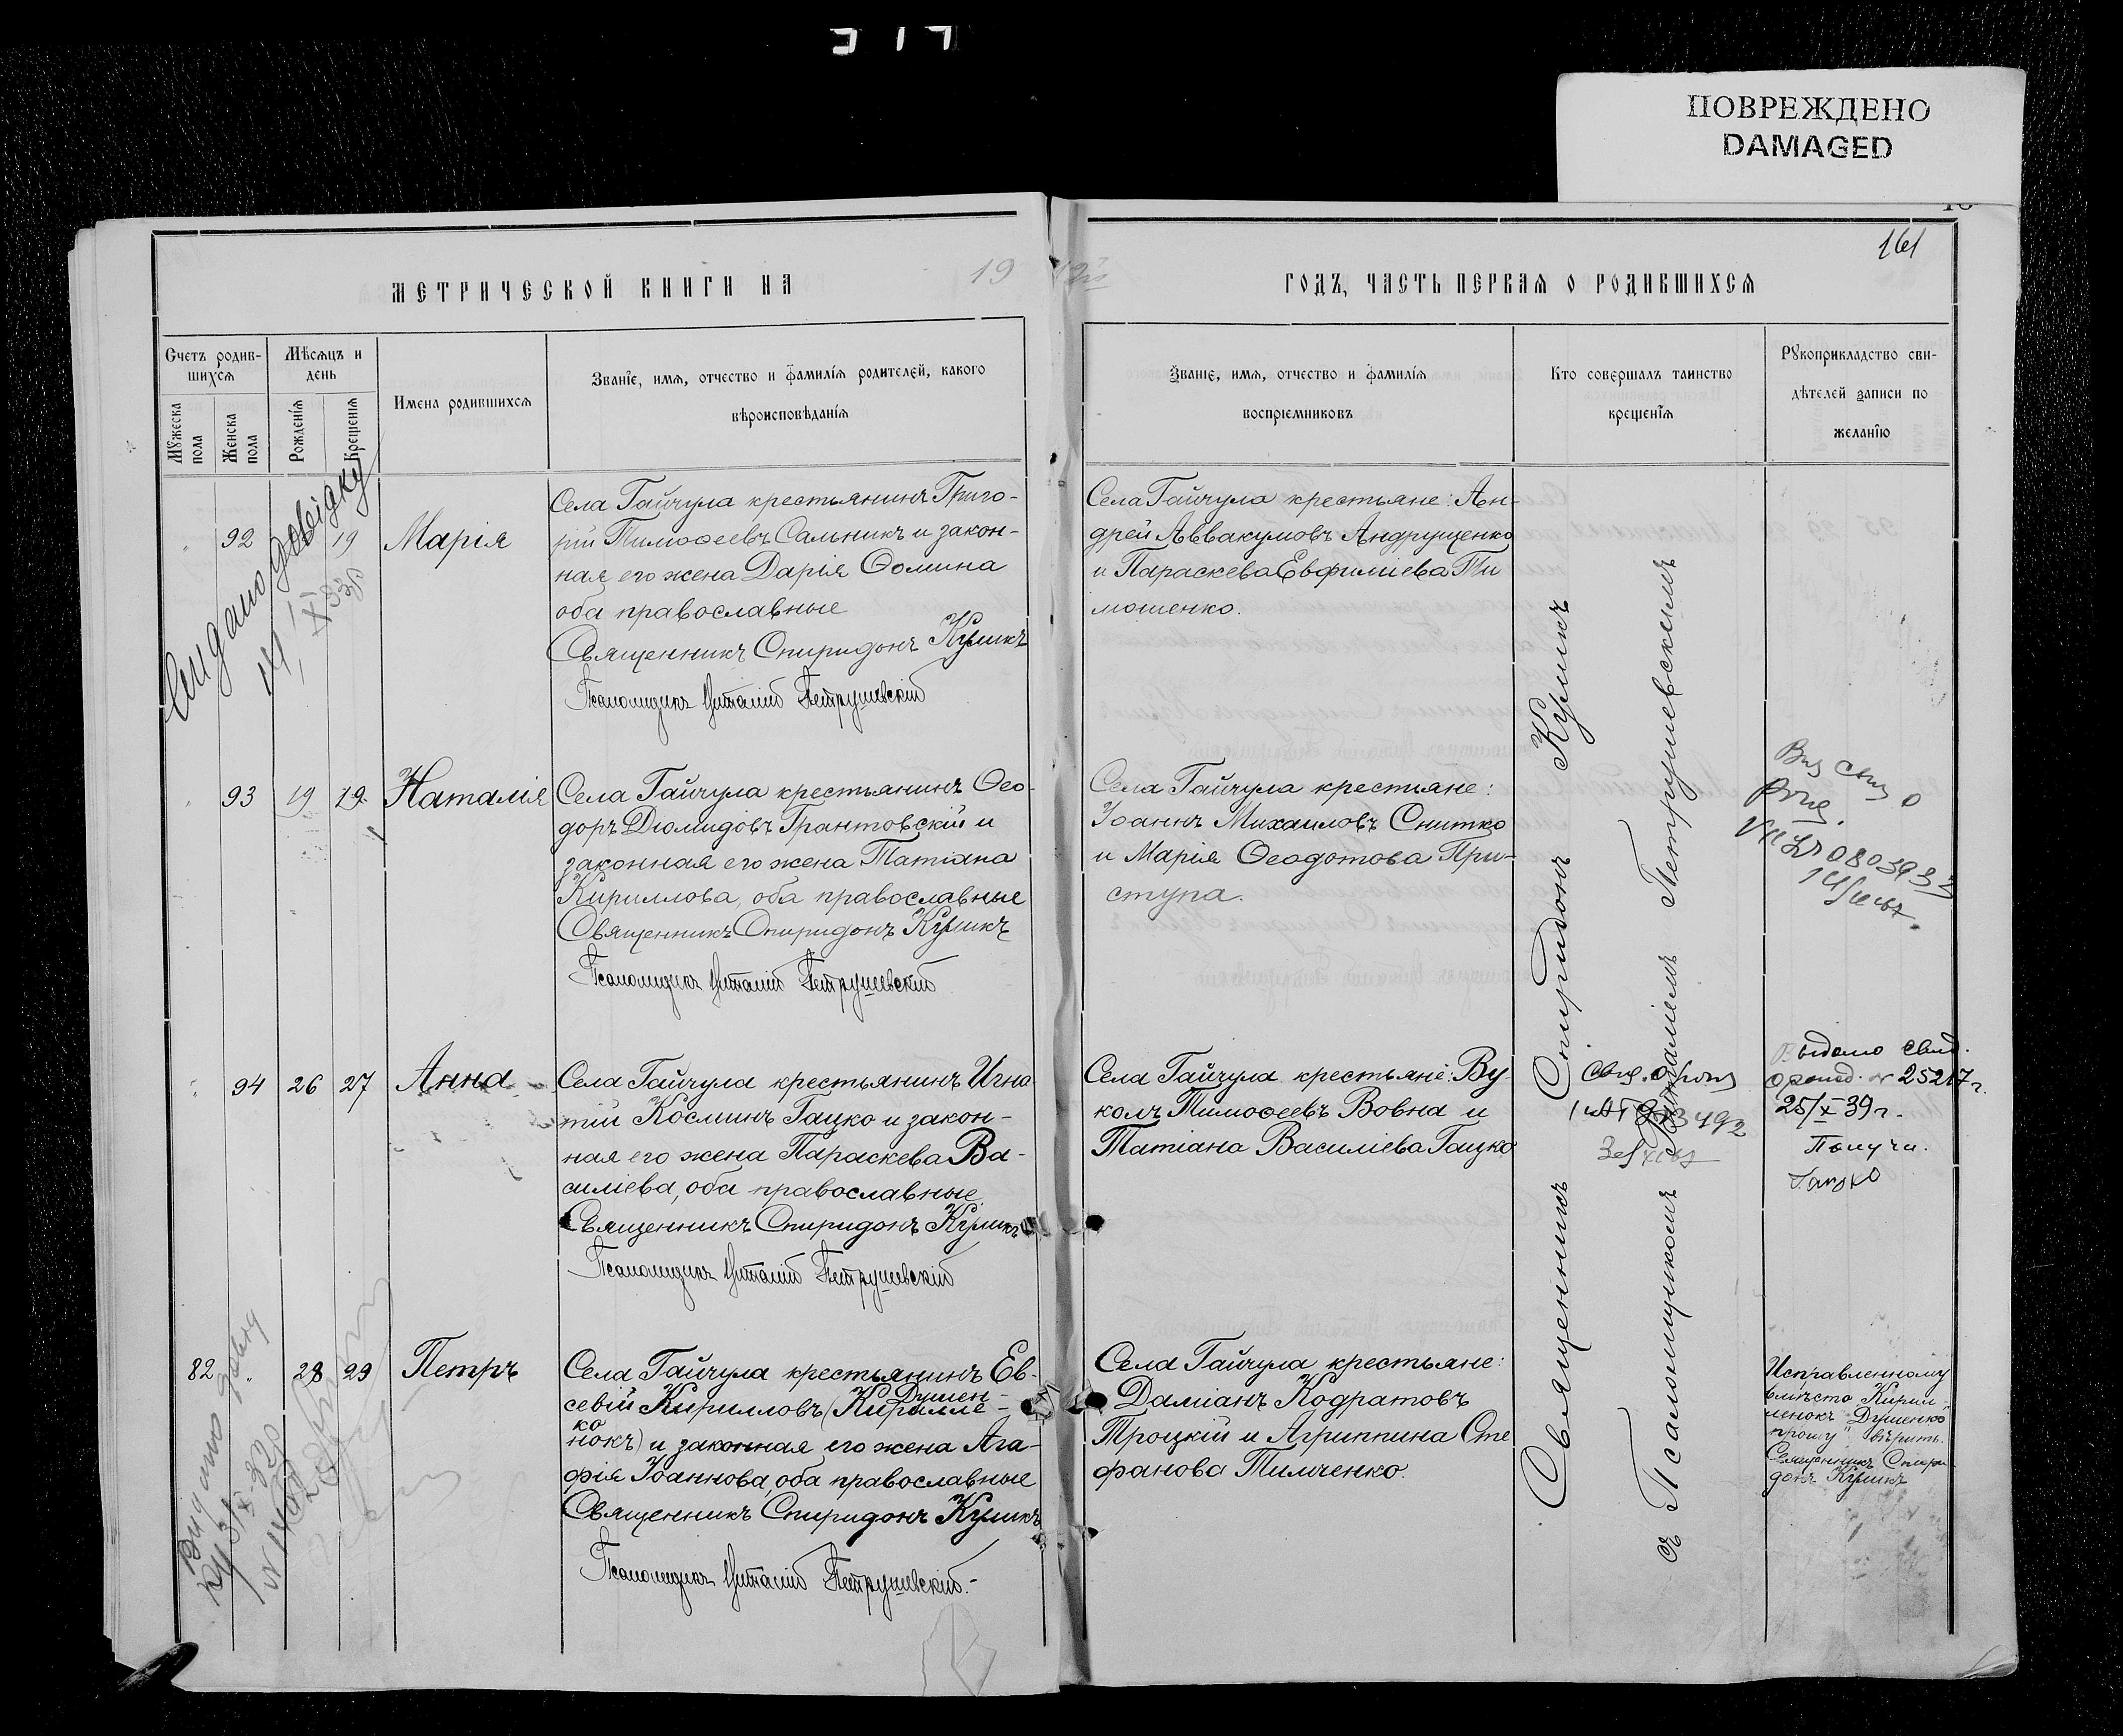 317
ПОВРЕЖДЕНО
DAMAGED
161
МЕТРИЧЕСКОЙ КНИГИ НА 19
ГОДЪ, ЧАСТЬ ПЕРВАЯ О РОДИВШИХСЯ
Счетъ родив-
шихся
Мѣсяцъ и
день
Мужеска пола
Женска пола
Рожденія
Крещенія
Имена родившихся
Званіе, имя, отчество и фамилія родителей, какого
вѣроисповѣданія
Званіе, имя, отчество и фамилія
воспріемниковъ
Кто совершалъ таинство
крещенія
Рукоприкладство сви-
дѣтелей записи по
желанію
92 19 Марія
Села Гайчула крестьянинъ Григо-
рій Тимоѳеевъ Сальникъ и закон-
ная его жена Дарія Ѳомина
оба православные
Священникъ Спиридонъ Куликъ
Псаломщикъ Виталій Петрушевскій
Села Гайчула крестьяне: Ан-
дрей Аввакумовъ Андрущенко
и Параскева Евфиміева Ти
мошенко.
93 19 19 Наталія
Села Гайчула крестьянинъ Ѳео-
доръ Діомидовъ Грантовскій и
законная его жена Татіана
Кириллова, оба православные
Священникъ Спиридонъ Куликъ
Псаломщикъ Виталій Петрушевскій
Села Гайчула крестьяне:
Іоаннъ Михаиловъ Снитко
и Марія Ѳеодотова При-
ступа.
94 26 27 Анна
Села Гайчула крестьянинъ Игна
тій Косминъ Гацко и закон-
ная его жена Параскева Ва-
силіева, оба православные
Священникъ Спиридонъ Куликъ
Псаломщикъ Виталій Петрушевскій
Села Гайчула крестьяне: Ву-
колъ Тимоѳеевъ Вовна и
Татіана Василіева Гацко
Выдано свид.
о рожд. № 25217
25/X 39 г.
Получи.
Гацко
82 28 29 Петръ
Села Гайчула крестьянинъ Ев-
севій Кирилловъ (Кирилле-
Душен-
нокъ) и законная его жена Ага-
ко
фія Іоаннова, оба православные
Священникъ Спиридонъ Куликъ
Псаломщикъ Виталій Петрушевскій.
Села Гайчула крестьяне:
Даміанъ Кодратовъ
Троцкій и Агриппина Сте
фанова Тимченко.
Исправленному
вмѣсто Кирил-
ленокъ "Душенко"
прошу вѣрить.
Священникъ Спири-
донъ Куликъ
Священникъ Спиридонъ Куликъ
съ Псаломщикомъ Виталіемъ Петрушевскимъ